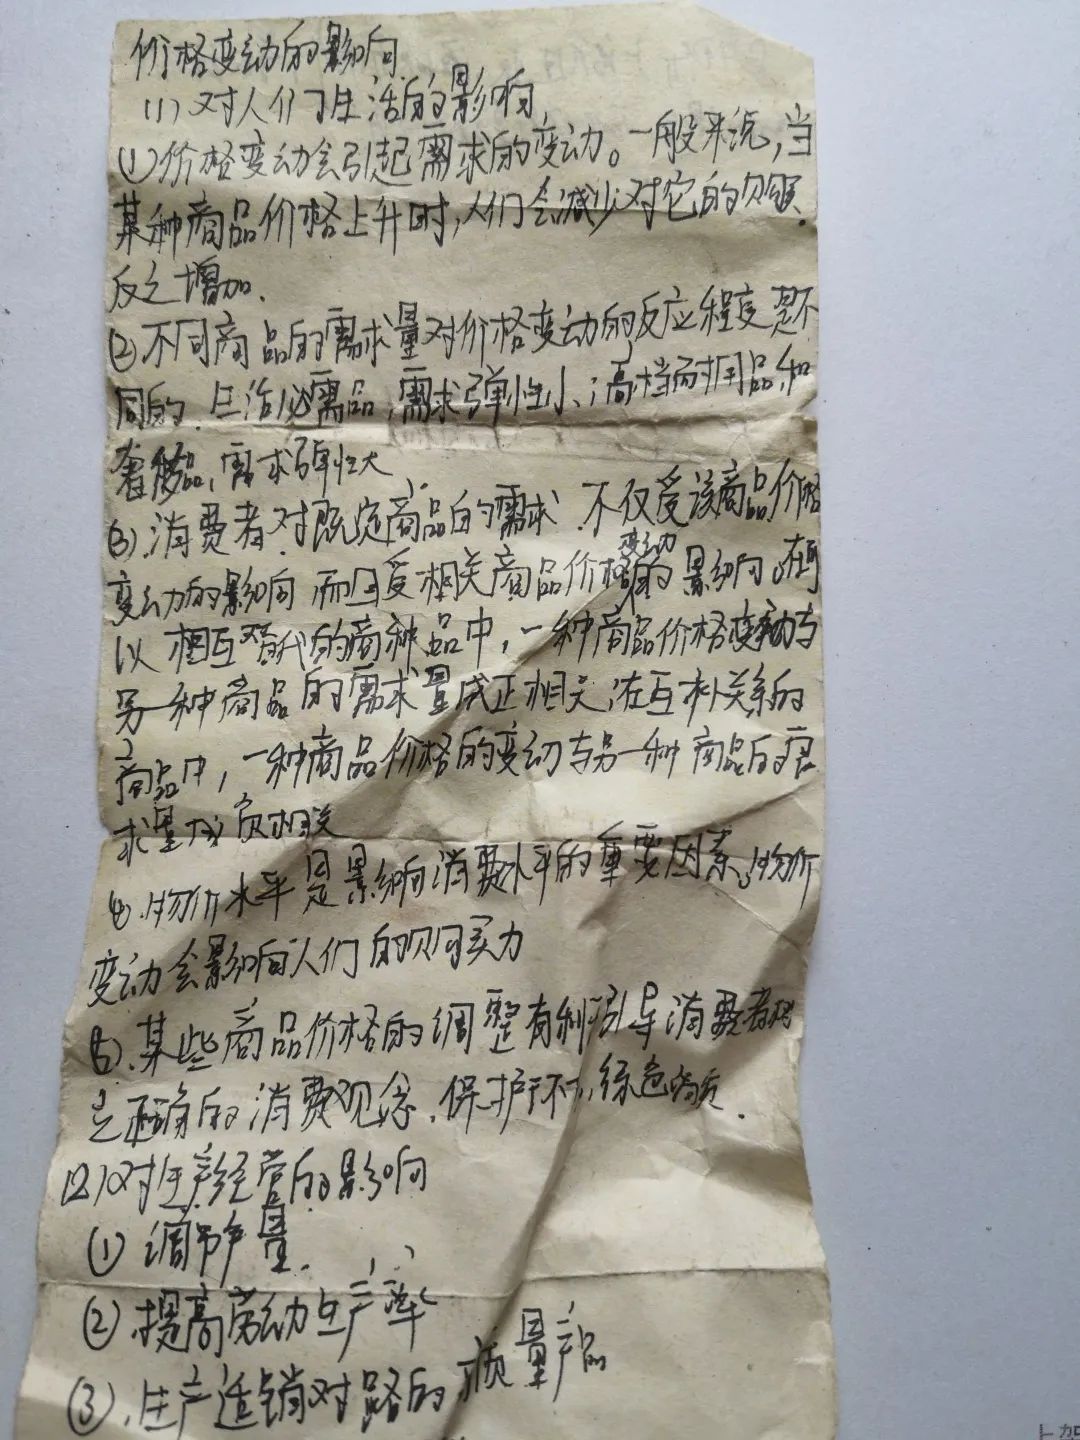 价格变动的影响
(1)对人们生活的影响
①价格变动会引起需求的变动。一般来说,当
某种商品价格上升时,人们会减少对它的购买.
反之增加.
②不同商品的需求量对价格变动的反应程度是不
同的.生活必需品,需求弹性小;高档耐用品和
奢侈品,需求弹性大
③.消费者对既定商品的需求.不仅受该商品价格
变动的影响而且受相关商品价格变动的影响。在可
以相互替代的商种品中,一种商品价格变动与
另一种商品的需求量成正相关;在互补关系的
商品中,一种商品价格的变动与另一种商品的需
求量成负相关
④.物价水平是影响消费水平的重要因素,物价
变动会影响人们的购买力
⑤.某些商品价格的调整有利引导消费者树
立正确的消费观念.保护环,绿色消费.
(2)对生产经营的影响
①调节产量.
②.提高劳动生产率
③.生产适销对路的质量产品
加